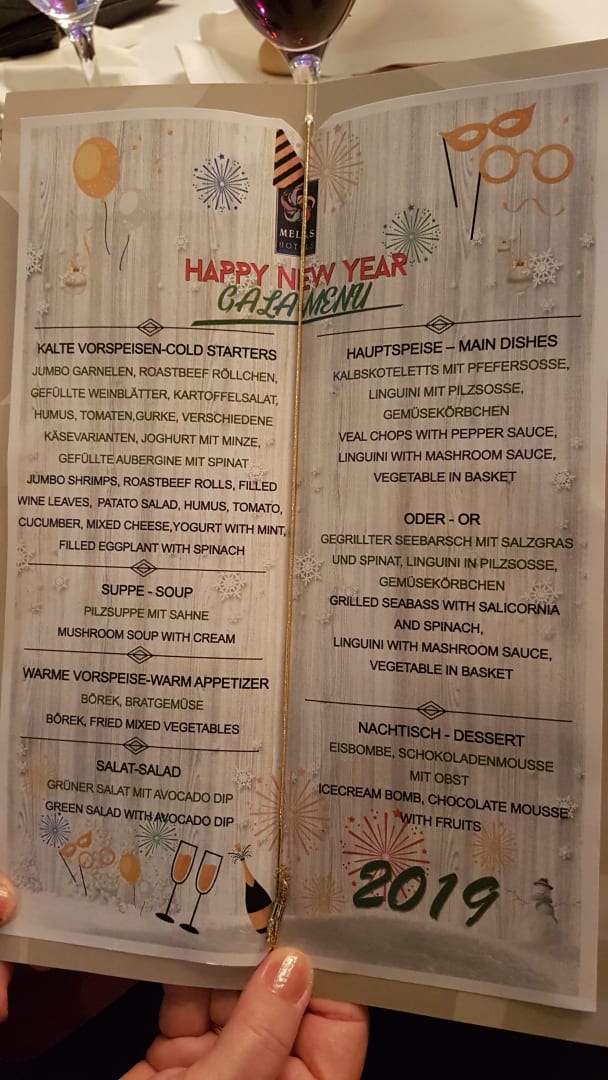 MELAS
HOTELS
HAPPY NEW YEAR
GALA MENU
KALTE VORSPEISEN-COLD STARTERS
JUMBO GARNELEN, ROASTBEEF RÖLLCHEN,
GEFÜLLTE WEINBLÄTTER, KARTOFFELSALAT,
HUMUS, TOMATEN,GURKE, VERSCHIEDENE
KÄSEVARIANTEN, JOGHURT MIT MINZE,
GEFÜLLTE AUBERGINE MIT SPINAT
JUMBO SHRIMPS, ROASTBEEF ROLLS, FILLED
WINE LEAVES, PATATO SALAD, HUMUS, TOMATO,
CUCUMBER, MIXED CHEESE,YOGURT WITH MINT,
FILLED EGGPLANT WITH SPINACH
SUPPE - SOUP
PILZSUPPE MIT SAHNE
MUSHROOM SOUP WITH CREAM
WARME VORSPEISE-WARM APPETIZER
BÖREK, BRATGEMÜSE
BÖREK, FRIED MIXED VEGETABLES
SALAT-SALAD
GRÜNER SALAT MIT AVOCADO DIP
GREEN SALAD WITH AVOCADO DIP
HAUPTSPEISE – MAIN DISHES
KALBSKOTELETTS MIT PFEFERSOSSE,
LINGUINI MIT PILZSOSSE,
GEMÜSEKÖRBCHEN
VEAL CHOPS WITH PEPPER SAUCE,
LINGUINI WITH MASHROOM SAUCE,
VEGETABLE IN BASKET
ODER - OR
GEGRILLTER SEEBARSCH MIT SALZGRAS
UND SPINAT, LINGUINI IN PILZSOSSE,
GEMÜSEKÖRBCHEN
GRILLED SEABASS WITH SALICORNIA
AND SPINACH,
LINGUINI WITH MASHROOM SAUCE,
VEGETABLE IN BASKET
NACHTISCH - DESSERT
EISBOMBE, SCHOKOLADENMOUSSE
MIT OBST
ICECREAM BOMB, CHOCOLATE MOUSSE
WITH FRUITS
2019